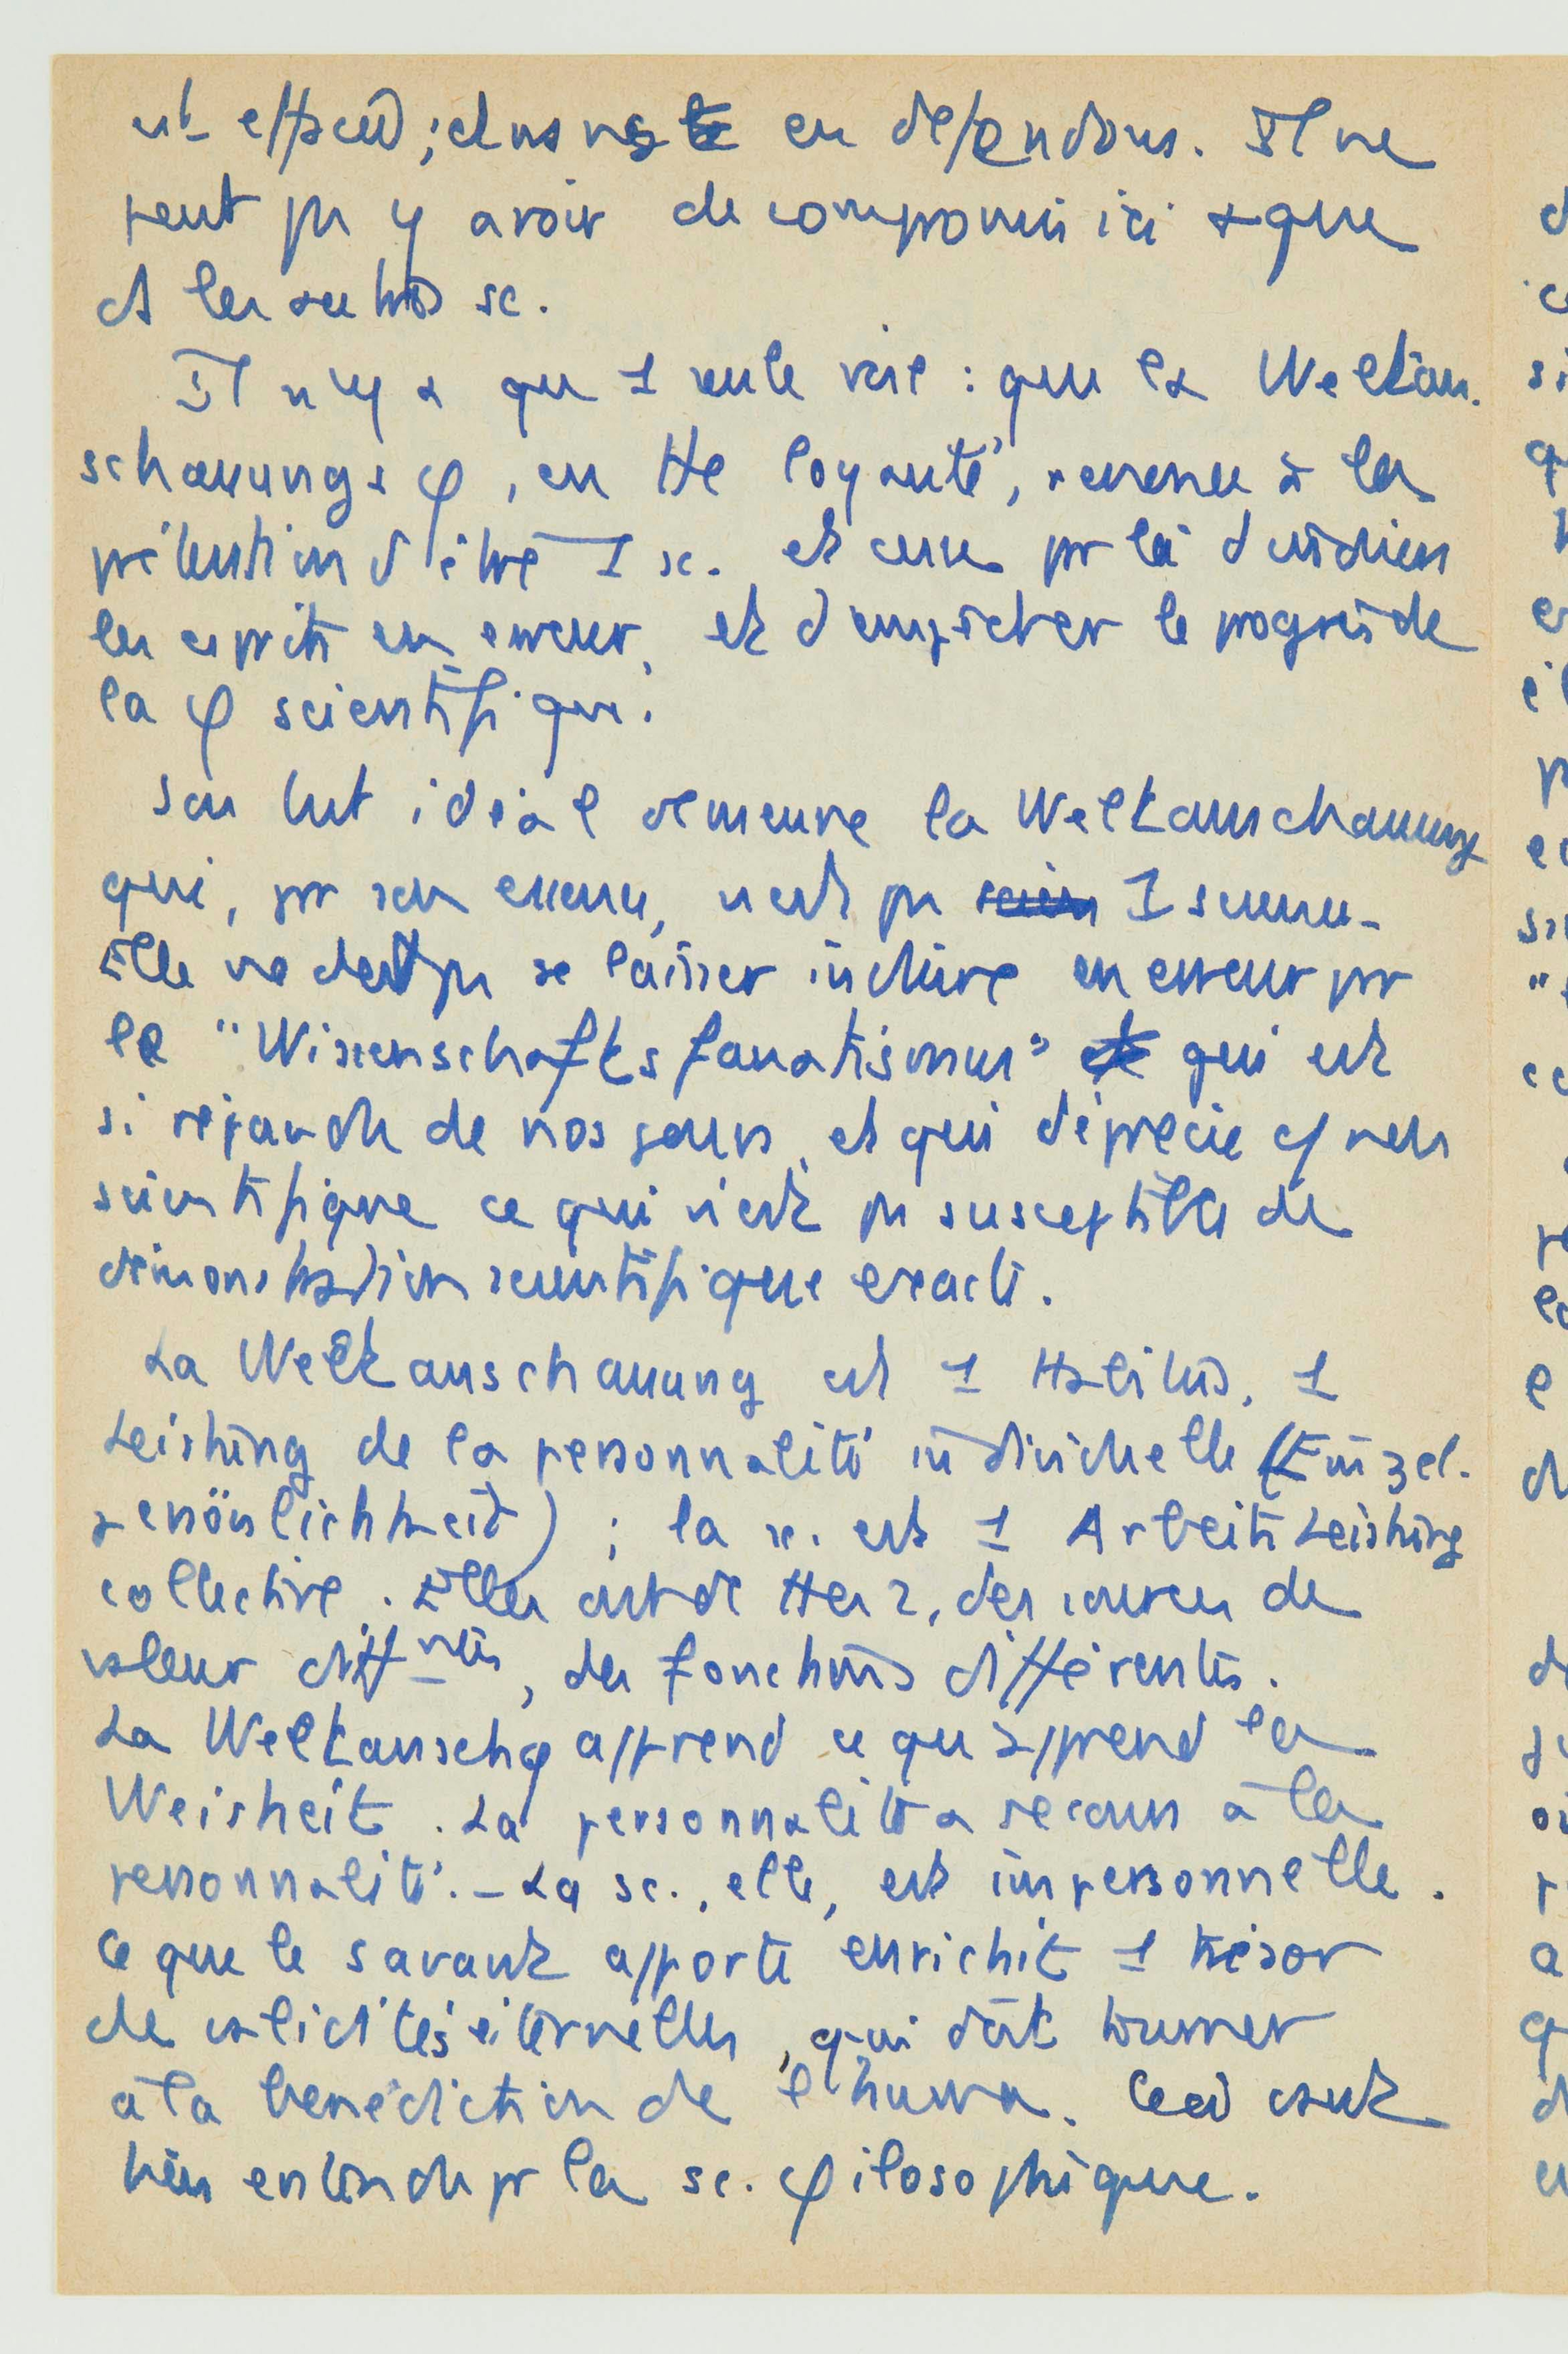 en défendons. Il ne
peut pas y avoir de compromis ici que
ds les autres sc.
Il n'y a qu'1 seule voie : que la Weltan-
schauungs φ, en tte loyauté, renonce à la
prétention d'être 1 sc. et cesse par là d'induire
les esprits en erreur, et d'empêcher le progrès de
la φ scientifique.
Son but idéal demeure la Weltanschauung
qui, par son essence, n'est pas 1 science.
Elle ne doit pas se laisser induire en erreur par
le "Wissenschaftsfanatismus" qui est
si répandu de nos jours, et qui déprécie
scientifique ce qui n'est pas susceptible de
démonstration scientifique exacte.
La Weltanschauung est 1 1
Leistung de la personnalité individuelle (Einzel-
persönlichkeit) ; la sc. est 1 Arbeitsleistung
collective. Elles ont de des de
valeur diff<sup>ntes</sup>, des fonctions différentes.
La Weltanschg apprend ce qu'apprend la
Weisheit. La personnalité a recours à la
personnalité. – La sc., elle, est impersonnelle.
Ce que le savant apporte enrichit 1 trésor
de validités éternelles, qui doit tourner
à la bénédiction de l'huma. Ceci vaut
bien entendu pr la sc. φilosophique.